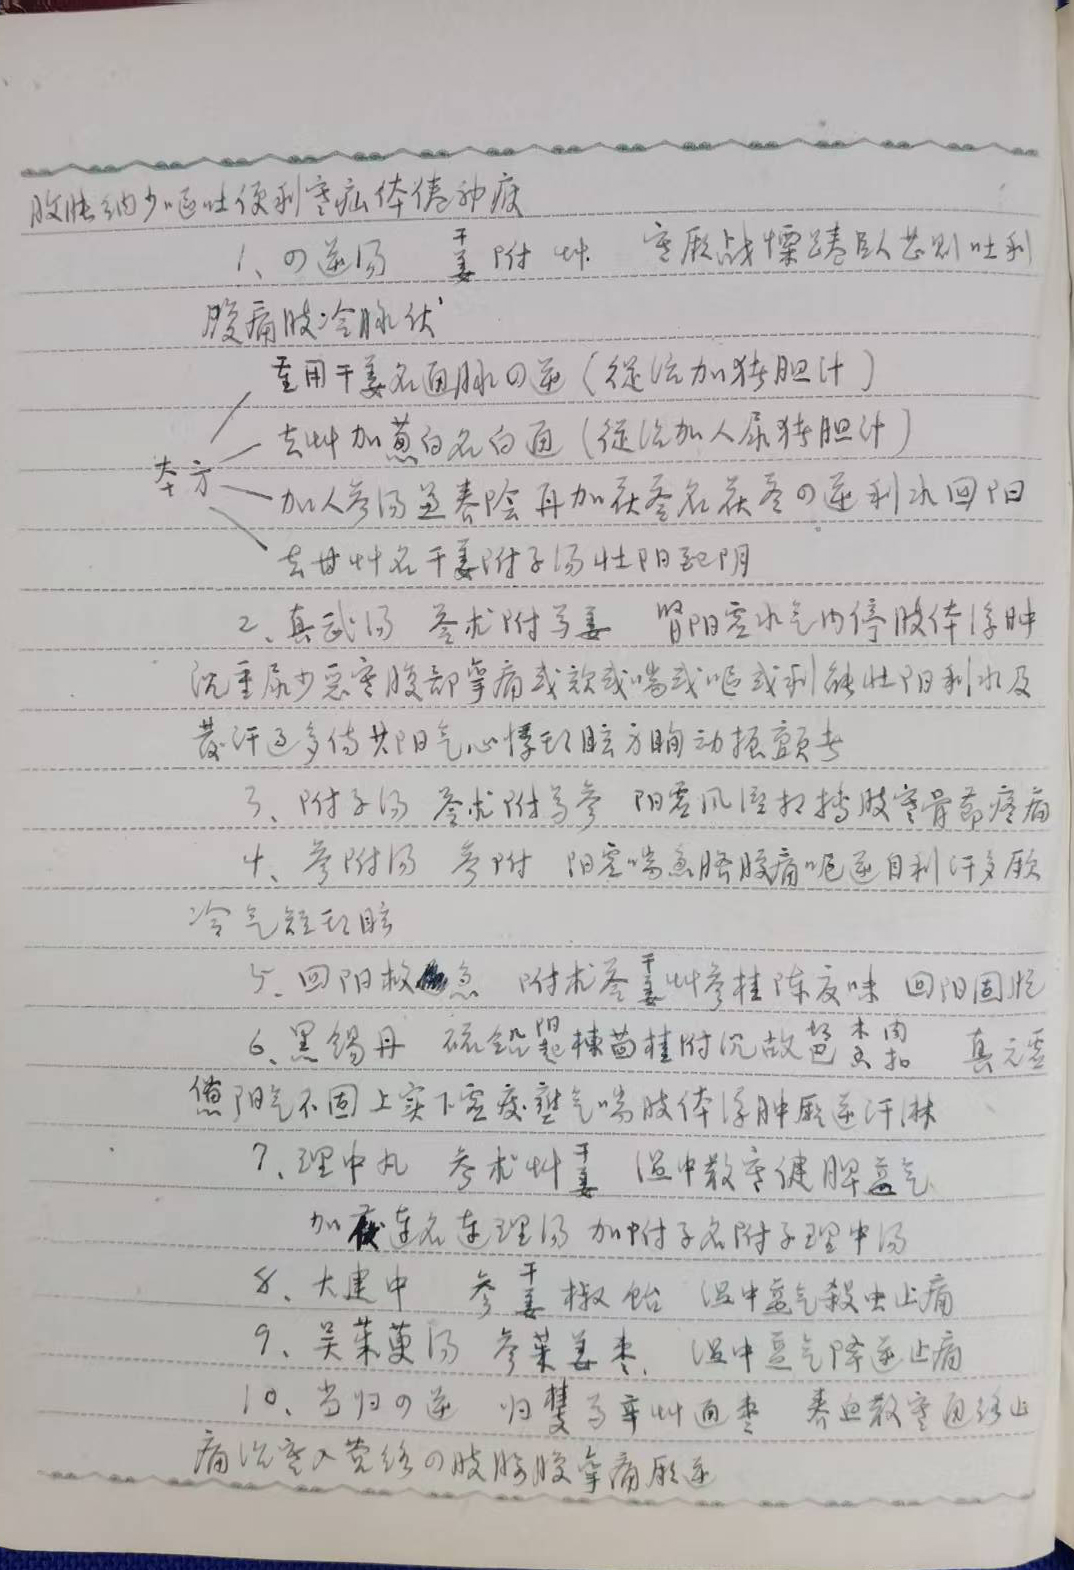 胀纳少呕吐便利寒疝体倦神疲
1、の逆汤 干姜附艸 寒厥战慄踡臥甚则吐利
腹痛肢冷脉伏
重用干姜名通脉の逆(从治加猪胆汁)
去艸加葱白名白通(从治加人尿猪胆汁)
本方
加人参汤益养阴再加茯苓名茯苓の逆利水回阳
去甘艸名干姜附子汤壮阳配阴
2、真武汤 苓术附芍姜 肾阳虚水气内停肢体浮肿
沉重尿少恶寒腹部挛痛或欬或喘或呕或利能壮阳利水及
发汗过多伤其阳气心悸头眩身瞤动振颤者
3、附子汤 苓术附芍参 阳虚风湿相搏肢寒骨节疼痛
4、参附汤 参附 阳虚喘急脐腹痛呃逆自利汗多厥
冷气短头眩
5、回阳救急 附术苓干姜艸参桂陈夏味 回阳固脱
6、黑锡丹 硫铅阳起楝茴桂附沉故芦巴木香肉扣 真元虚
惫阳气不固上实下虚痰壅气喘肢体浮肿厥逆汗淋
7、理中丸 参术艸干姜 温中散寒健脾益气
加连名连理汤 加附子名附子理中汤
8、大建中 参干姜椒饴 温中益气殺虫止痛
9、吴茱萸汤 参茱姜枣 温中益气降逆止痛
10、当归の逆 归桂芍辛艸通枣 养血散寒通络止
痛治寒入营络の肢胁腹挛痛厥逆